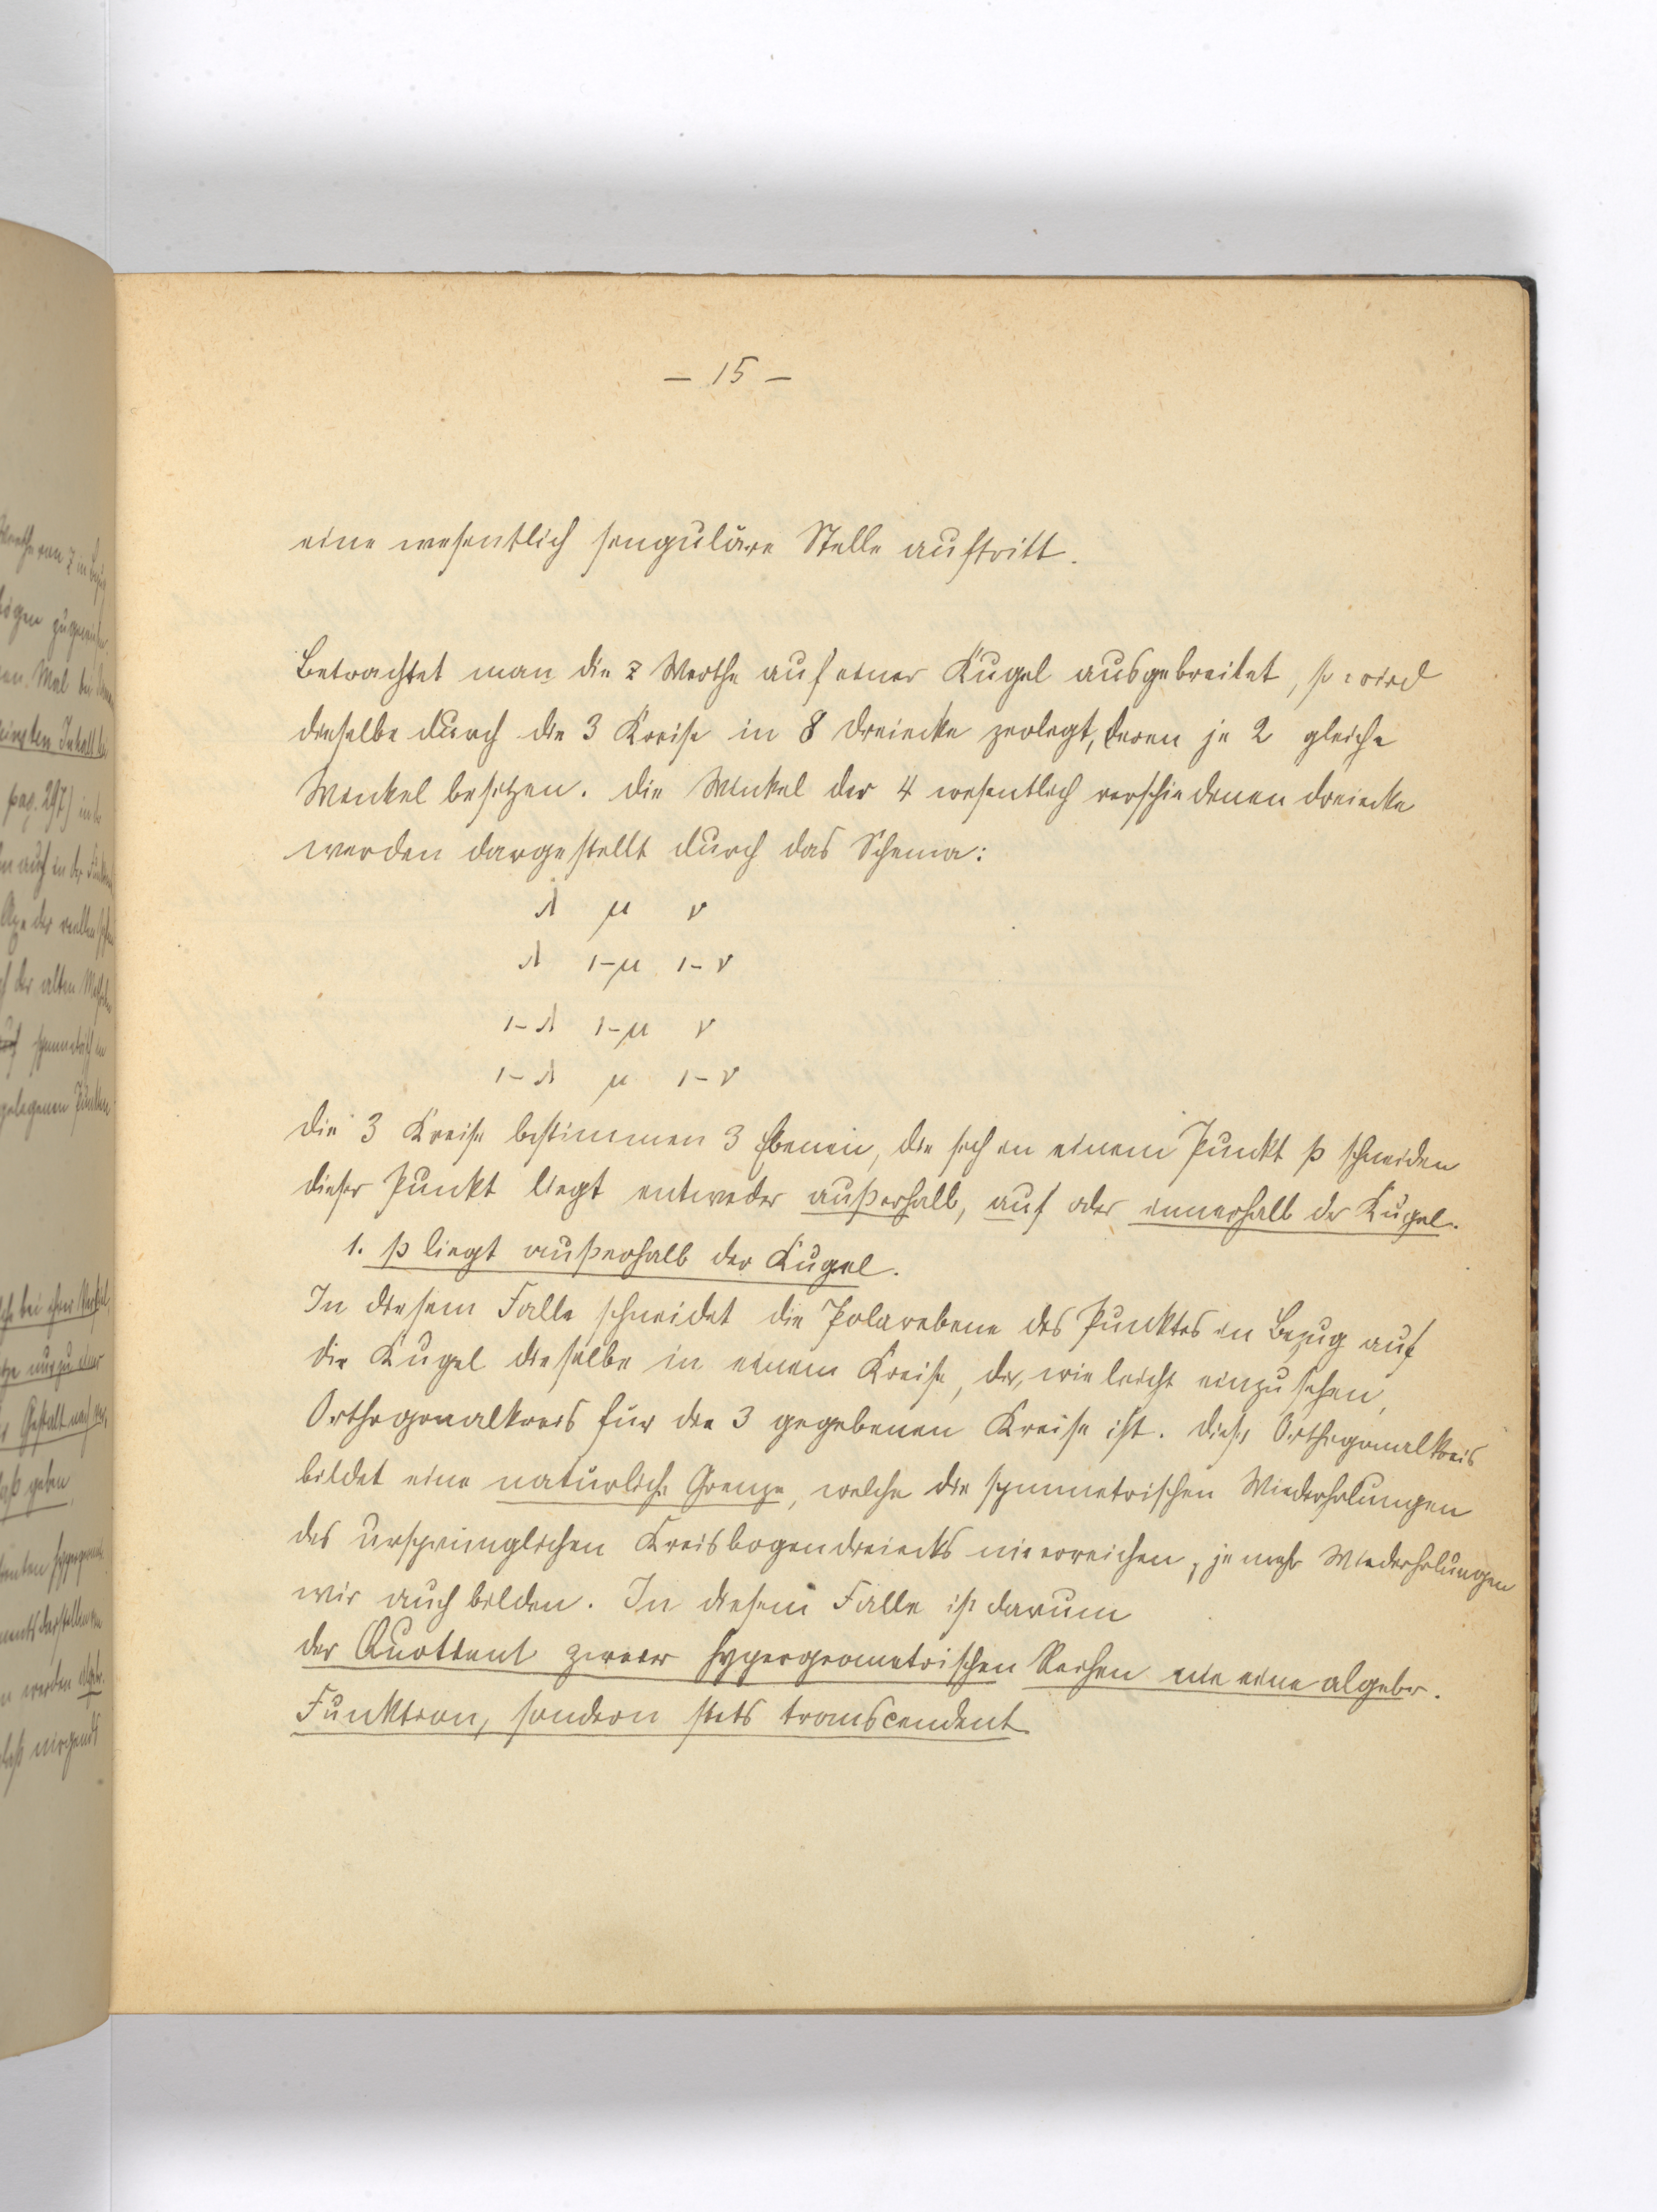 – 15 –
eine wesentlich singuläre Stelle auftritt.
Betrachtet man die z Werthe auf einer Kugel ausgebreitet, so wird
dieselbe durch die 3 Kreise in 8 Dreiecke zerlegt, deren je 2 gleiche
Winkel besitzen. Die Winkel der 4 wesentlich verschiedenen Dreiecke
werden dargestellt durch das Schema:
λ μ ν
λ 1-μ 1-ν
1-λ 1-μ ν
1-λ μ 1-ν
Die 3 Kreise bestimmen 3 Ebenen, die sich in einem Punkt p schneiden
dieser Punkt liegt entweder außerhalb, auf oder innerhalb der Kugel.
1. p liegt außerhalb der Kugel.
In diesem Falle schneidet die Polarebene des Punktes in Bezug auf
die Kugel dieselbe in einem Kreise, der, wie leicht einzusehen,
Orthogonalkreis für die 3 gegebenen Kreise ist. Dieser Orthogonalkreis
bildet eine natürliche Grenze, welche die symmetrischen Wiederholungen
des ursprünglichen Kreisbogendreiecks nie erreichen, je mehr Wiederholungen
wir auch bilden. In diesem Falle ist darum
der Quotient zweier hypergeometrischen Reihen nie eine algebr.
Funktion, sondern stets transcendent